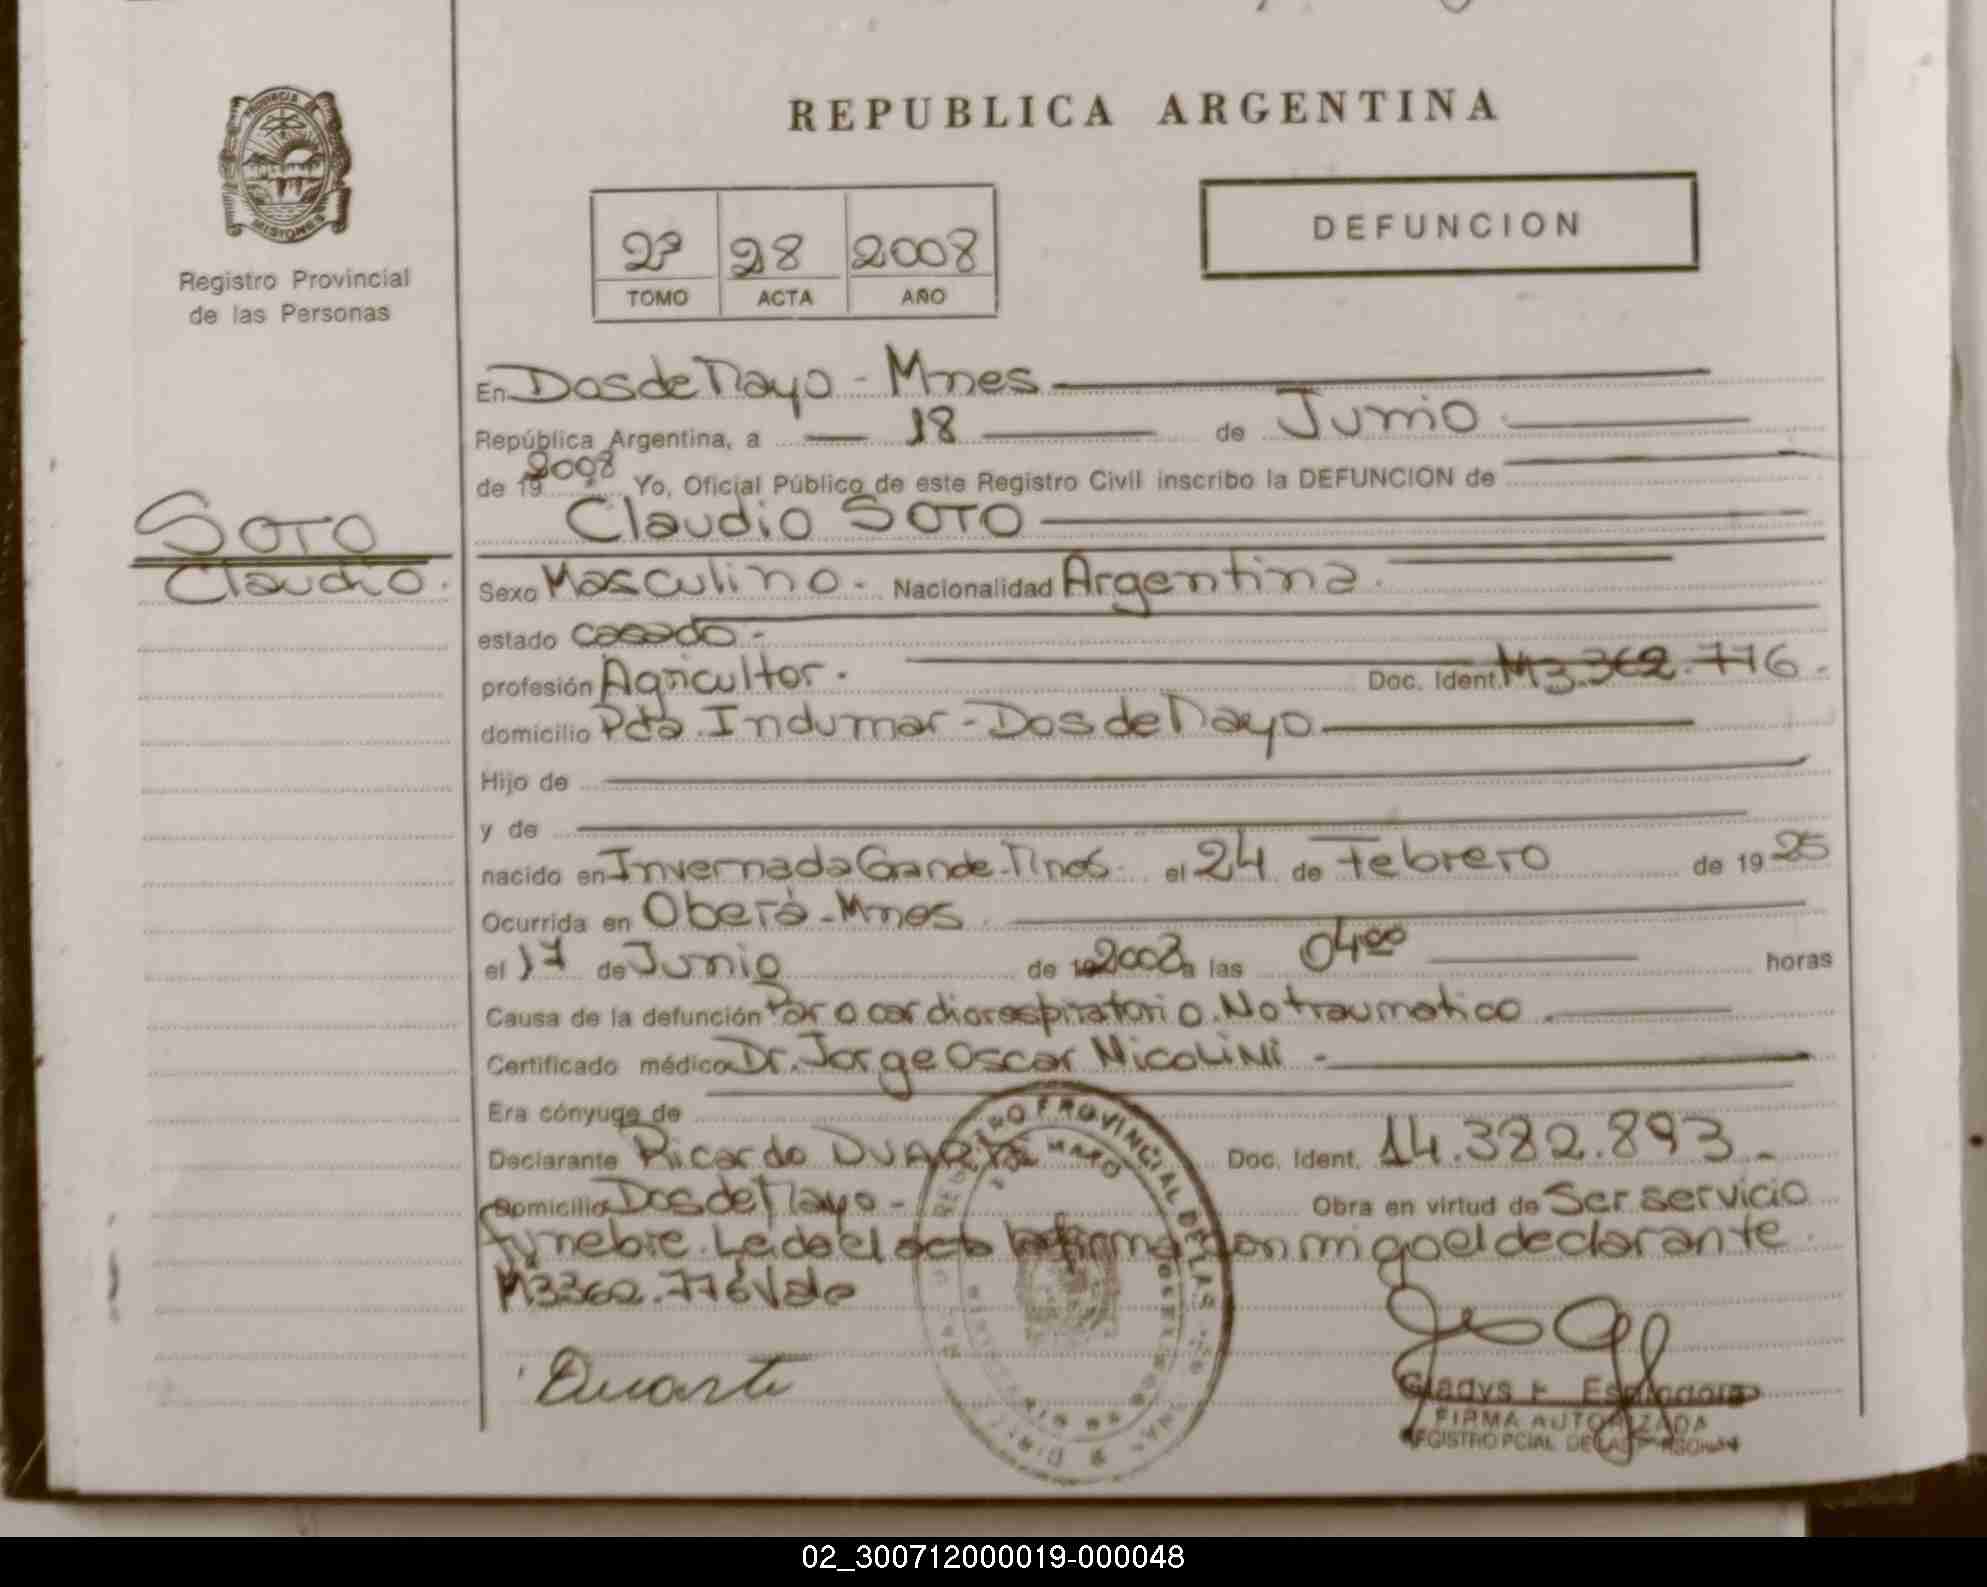 REPUBLICA ARGENTINA
PROVINCIA
MISIONES
Registro Provincial
de las Personas
2º 28 2008
TOMO ACTA AÑO
DEFUNCION
En Dos de Mayo - Mnes
República Argentina, a 18 de Junio
de 19 2008 Yo, Oficial Público de este Registro Civil inscribo la DEFUNCION de
Claudio SOTO
SOTO
Claudio.
Sexo Masculino - Nacionalidad Argentina.
estado casado -
profesión Agricultor. Doc. Ident. M3.362.776.
domicilio Pda. Indumar - Dos de Mayo
Hijo de
y de
nacido en Invernada Grande - Mnes. el 24 de Febrero de 19 25
Ocurrida en Oberá - Mnes
el 17 de Junio de 2008 a las 04 00 horas
Causa de la defunción Paro cardiorespiratorio. No traumatico.
Certificado médico Dr. Jorge Oscar Nicolini -
Era cónyuge de
Declarante Ricardo DUARTE Doc. Ident. 14.382.893. -
Domicilio Dos de Mayo - Obra en virtud de Ser servicio
funebre. Leida el acta la firma con migo el declarante.
M3362.776 Vale
Duarte
Gladys F.
FIRMA AUTORIZADA
REGISTRO PCIAL DE LAS PERSONAS
REGISTRO PROVINCIAL DE LAS
02_300712000019-000048